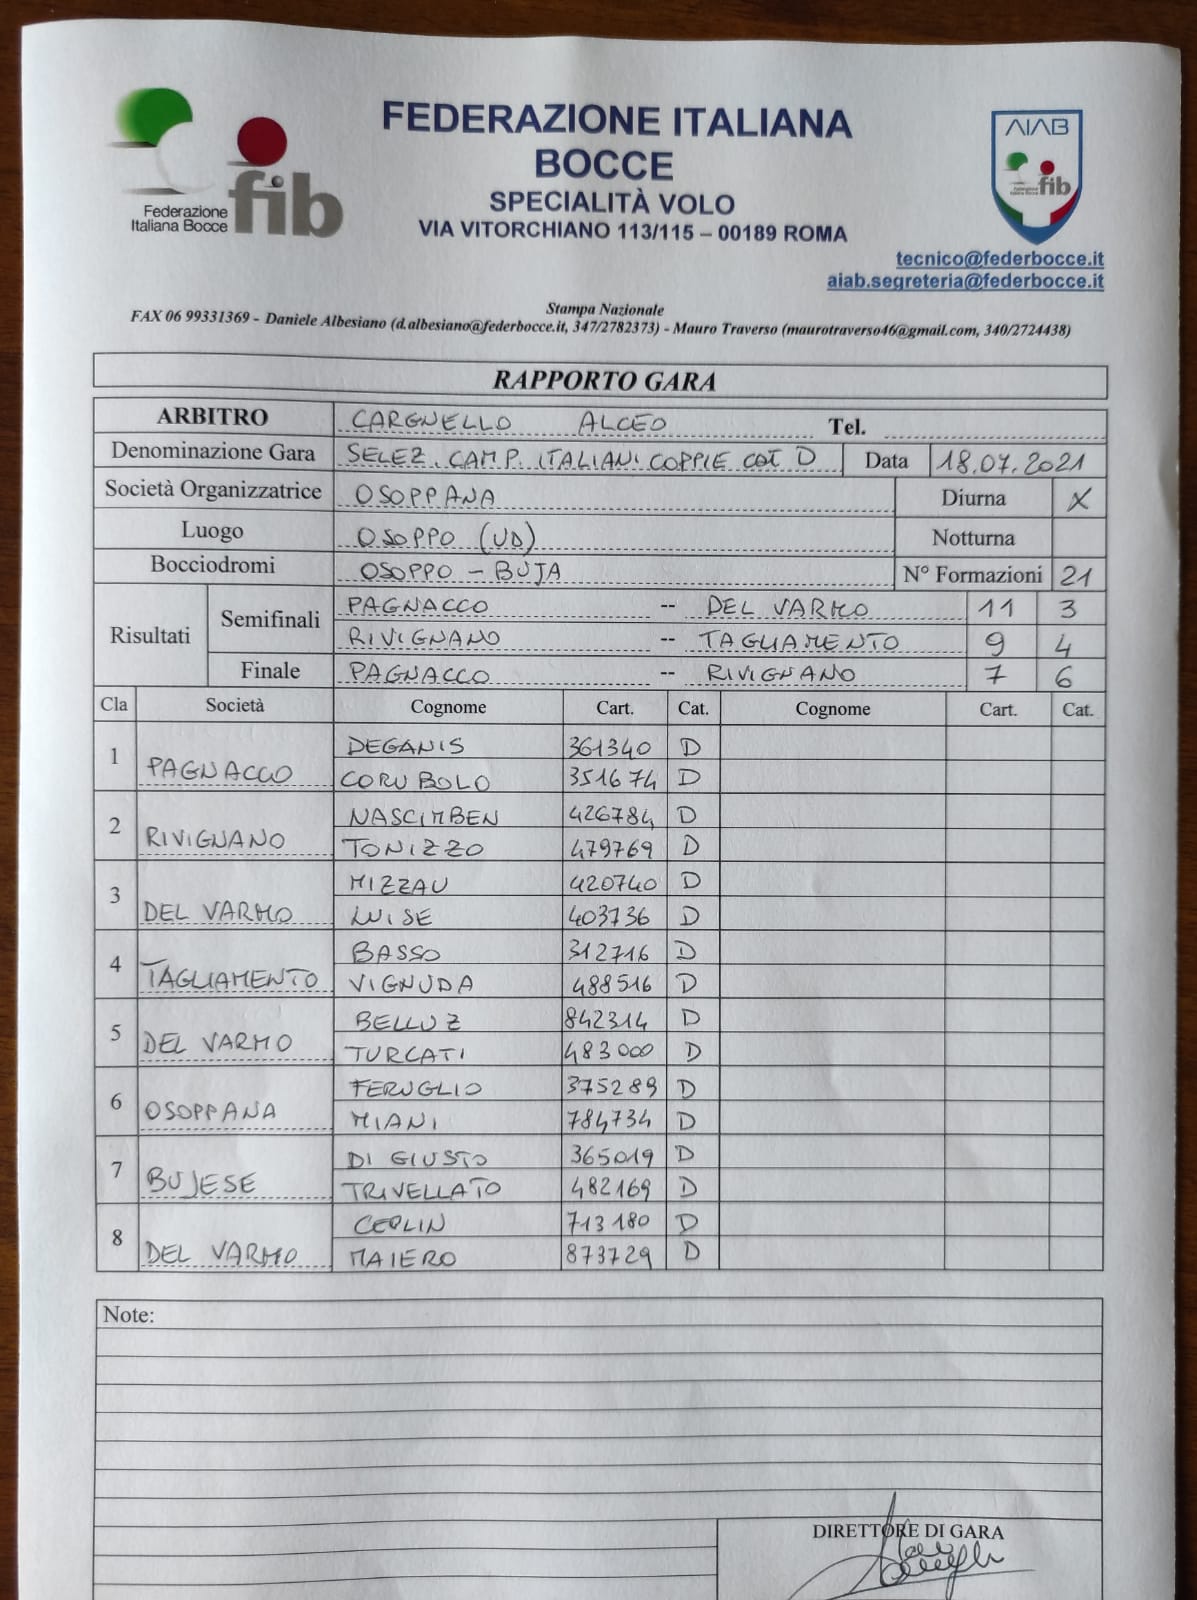 Federazione
Italiana Bocce
fib
FEDERAZIONE ITALIANA
BOCCE
SPECIALITÀ VOLO
VIA VITORCHIANO 113/115 – 00189 ROMA
AIAB
fib
tecnico@federbocce.it
aiab.segreteria@federbocce.it
Stampa Nazionale
FAX 06 99331369 - Daniele Albesiano (d.albesiano@federbocce.it, 347/2782373) - Mauro Traverso (maurotraverso46@gmail.com, 340/2724438)
RAPPORTO GARA
ARBITRO CARGNELLO ALCEO Tel.
Denominazione Gara SELEZ. CAMP. ITALIANI COPPIE CAT D Data 18.07.2021
Società Organizzatrice OSOPPANA Diurna X
Luogo OSOPPO (UD) Notturna
Bocciodromi OSOPPO - BUJA N° Formazioni 21
Risultati Semifinali PAGNACCO -- DEL VARMO 11 3
RIVIGNANO -- TAGLIAMENTO 9 4
Finale PAGNACCO -- RIVIGNANO 7 6
Cla Società Cognome Cart. Cat. Cognome Cart. Cat.
1 PAGNACCO DEGANIS 361340 D
CORUBOLO 351674 D
2 RIVIGNANO NASCIMBEN 426784 D
TONIZZO 479769 D
3 DEL VARMO MIZZAU 420740 D
LUISE 403736 D
4 TAGLIAMENTO BASSO 312716 D
VIGNUDA 488516 D
5 DEL VARMO BELLUZ 842314 D
TURCATI 483000 D
6 OSOPPANA FERUGLIO 375289 D
MIANI 784734 D
7 BUJESE DI GIUSTO 365019 D
TRIVELLATO 482169 D
8 DEL VARMO CEOLIN 713180 D
MAIERO 873729 D
Note:
DIRETTORE DI GARA